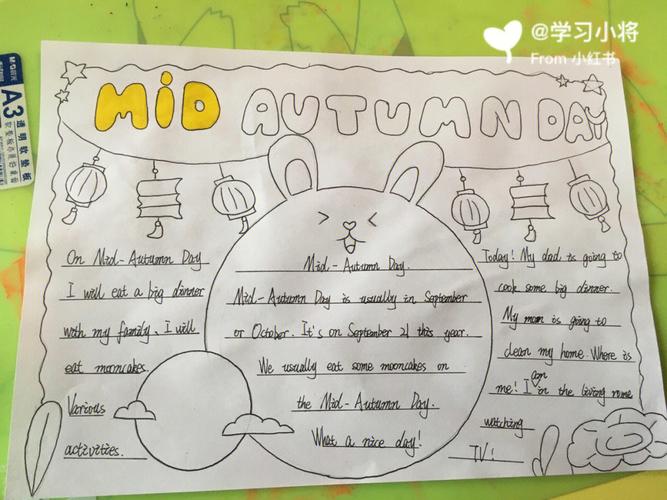 @学习小将
From 小红书
M&G 晨光
A3
透明软垫板
MiD AUTUMN DAY
On Mid-Autumn Day
I will eat a big dinner
with my family、I will
eat mooncakes.
Various
activities.
Mid-Autumn Day.
Mid-Autumn Day is usually in September
or October. It's on September 21 this year.
We usually eat some mooncakes on
the Mid-Autumn Day.
What a nice day!
Today! My dad is going to
cook some big dinner.
My mum is going to
clean my home. Where is
me! I am in the living rome
watching
TV!